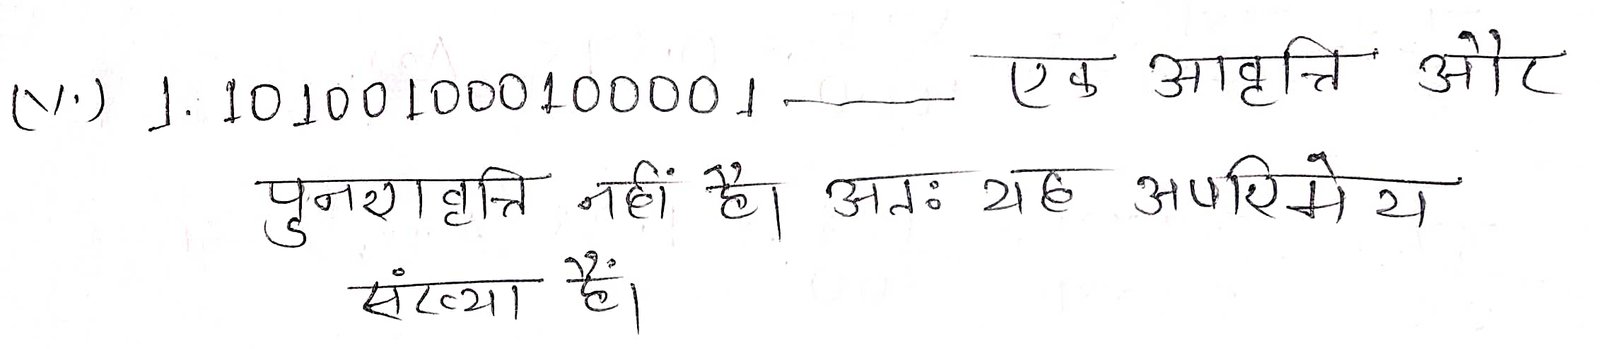 (V.) 1.101001000100001 —— एक आवृत्ति और
पुनरावृत्ति नहीं है। अतः यह अपरिमेय
संख्या हैं।